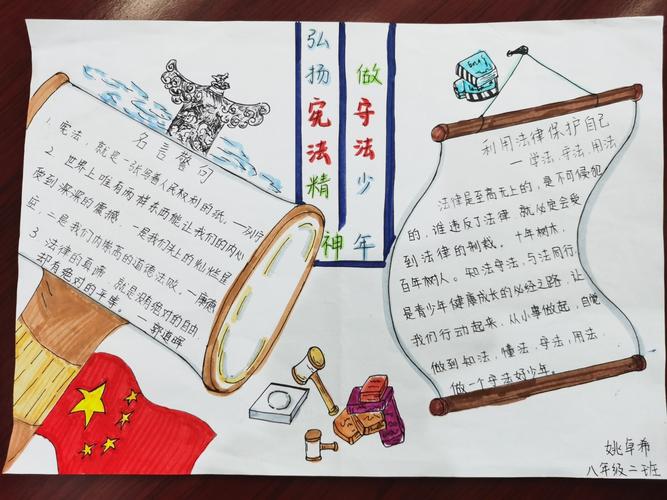 弘扬宪法精神
做守法少年
名言警句
1. 宪法，就是一张写着人民权利的纸。—列宁
2. 世界上唯有两样东西能让我们的内心
受到深深的震撼，一是我们头上的灿烂星
二是我们内崇高的道德法则。—康德
3. 法律的真谛，就是没有绝对的自由
却有绝对的平等。
—郭道晖
利用法律保护自己
—学法，守法，用法
法律是至高无上的，是不可侵犯
的，谁违反了法律 就必定会受
到法律的制裁。十年树木，
百年树人。知法守法，与法同行，
是青少年健康成长的必经之路，让
我们行动起来，从小事做起，自觉
做到知法，懂法，守法，用法
做一个守法好少年。
姚卓希
八年级二班